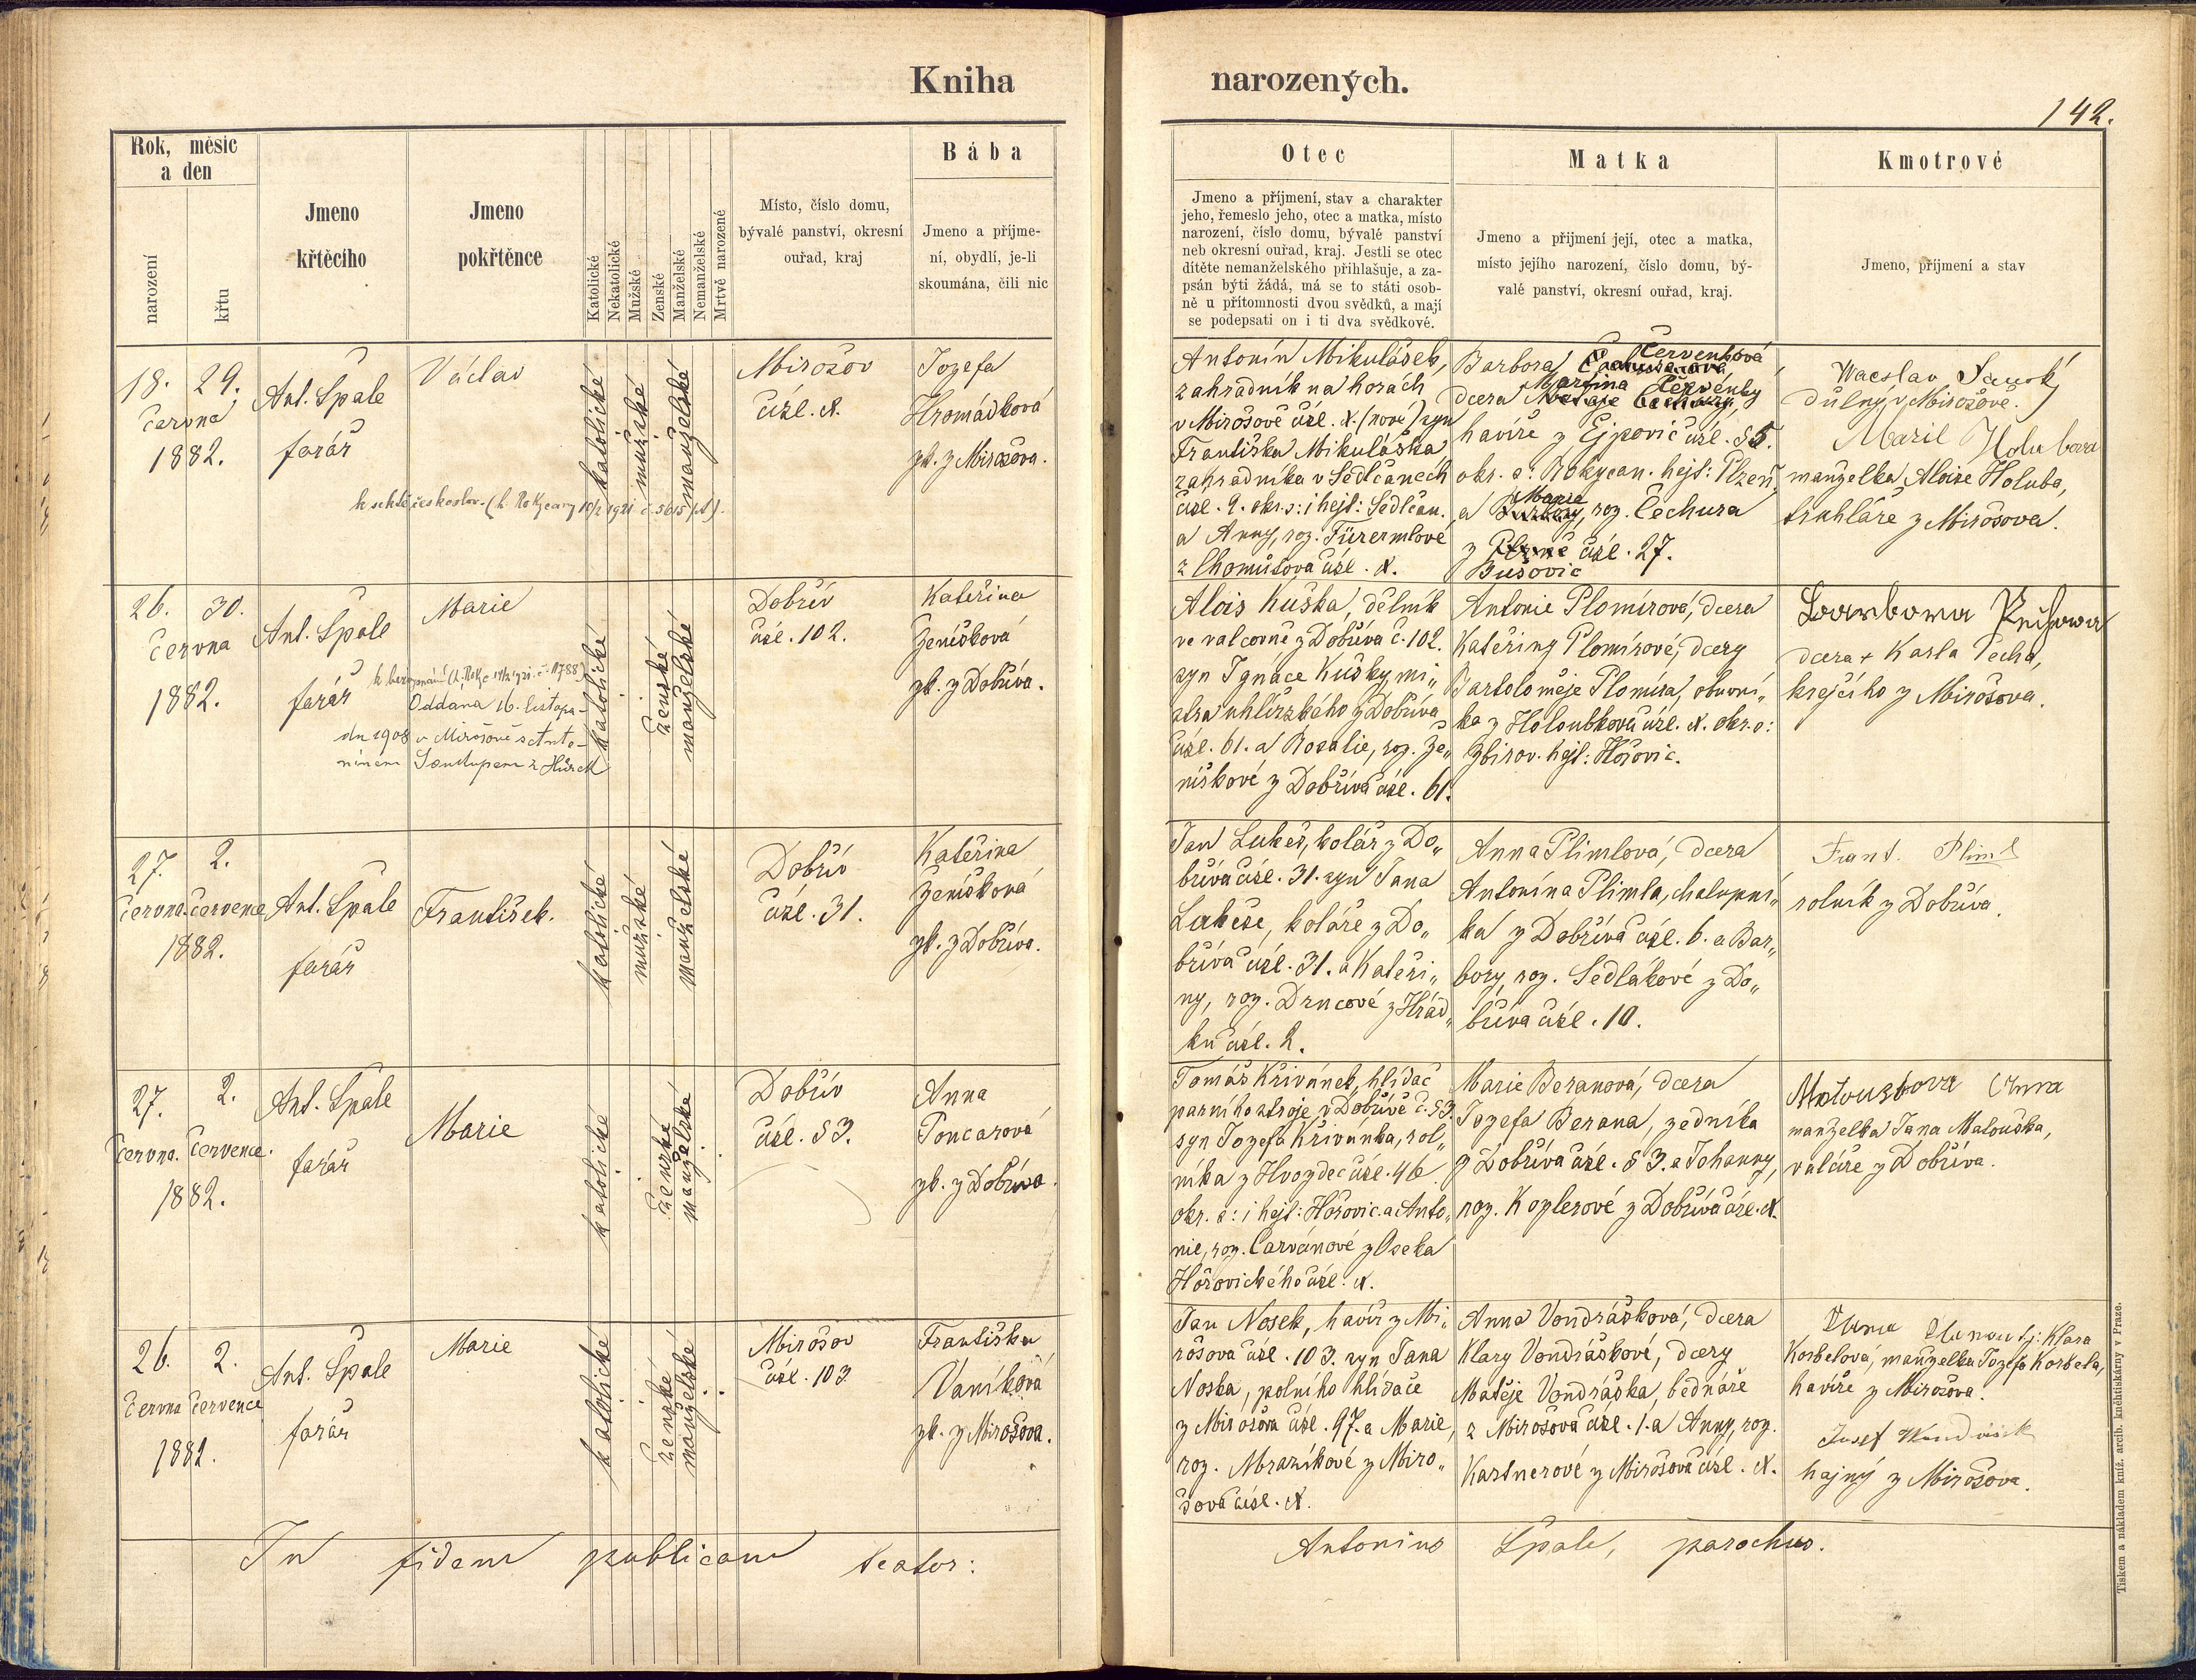 Kniha narozených.
142.
Rok, měsíc
a den
narození
křtu
Jmeno
křtěcího
Jmeno
pokřtěnce
Katolické
Nekatolické
Mužské
Ženské
Manželské
Nemanželské
Mrtvě narozené
Místo, číslo domu,
bývalé panství, okresní
ouřad, kraj
Bába
Jmeno a příjme-
ní, obydlí, je-li
skoumána, čili nic
Otec
Jmeno a příjmení, stav a charakter
jeho, řemeslo jeho, otec a matka, místo
narození, číslo domu, bývalé panství
neb okresní ouřad, kraj. Jestli se otec
dítěte nemanželského přihlašuje, a za-
psán býti žádá, má se to státi osob-
ně u přítomnosti dvou svědků, a mají
se podepsati on i ti dva svědkové.
Matka
Jmeno a přijmení její, otec a matka,
místo jejího narození, číslo domu, bý-
valé panství, okresní ouřad, kraj.
Kmotrové
Jmeno, příjmení a stav
18. 29.
června
1882.
Ant. Špale
farář
Václav
katolické
mužské
manželské
Mirošov
čísl. N.
Jozefa
Hromádková
zk. z Mirošova.
Antonín Mikulášek,
zahradník na horách
v Mirošově čísl. N. (nové) syn
Františka Mikuláška
zahradníka v Sedlčanech
čísl. 9. okr. s: i hejt: Sedlčan.
a Anny, roz. Fürermlové
z Chomútova čísl. N.
Barbora Červenková
dcera Martina Červenky
havíře z Ejpovic čísl. 55.
okr. s: Rokycan. hejt: Plzeň,
a Marie, roz. Čechura
z Bušovic čísl. 27.
Waeslav
důlný v Mirošově.
Marie Holubova
manželka Aloise Holuba,
truhláře z Mirošova.
26. 30.
června
1882.
Ant. Špale
farář
Marie
Oddána 16. listopa-
du 1908 v Mirošově s Anto-
nínem
katolické
ženské
manželské
Dobřív
čísl. 102.
Kateřina
Ženíšková
zk. z Dobříva.
Alois Kuška, dělník
ve valcovně z Dobříva č. 102.
syn Ignáce Kušky, mi„
stra uhlířského z Dobříva
čísl. 61. a Rosalie, roz. Že„
níškové z Dobříva čísl. 61.
Antonie Plomírová, dcera
Kateřiny Plomírové, dcery
Bartoloměje Plomíra, obuvní„
ka z Holoubkova čísl. N. okr. s:
Zbirov. hejt: Hořovic.
Barbora Pechova
dcera + Karla Pecha,
krejčího z Mirošova.
27. 2.
června. července
1882.
Ant. Špale
farář
František.
katolické
mužské
manželské
Dobřív
čísl. 31.
Kateřina
Ženíšková
zk. z Dobříva.
Jan Lukeš, kolář z Do„
bříva čísl. 31. syn Jana
Lukeše, koláře z Do„
bříva čísl. 31. a Kateři„
ny, roz. Drncové z Hrád„
ku čísl. 2.
Anna Plimlová, dcera
Antonína Plimla, chalupní„
ka z Dobříva čísl. 6. a Bar„
bory, roz. Sedlákové z Do„
bříva čísl. 10.
Frant. Pliml
rolník z Dobříva.
27. 2.
června. července.
1882.
Ant. Špale
farář
Marie
katolické
ženské
manželské
Dobřív
čísl. 53.
Anna
Poncarová
zk. z Dobříva.
Tomáš Křivánek, hlídač
parního stroje v Dobřívě č. 53.
syn Jozefa Křivánka, rol„
níka z Hvozdec čísl. 46.
okr. s: i hejt: Hořovic. a Anto„
nie, roz. Carvánové z Oseka
Hořovického čísl. N.
Marie Beranová, dcera
Jozefa Berana, zedníka
z Dobříva čísl. 53. a Johanny,
roz. Koplerové z Dobříva čísl. N.
Matouskova Anna
manželka Jana Matouška,
valcíře z Dobříva.
26. 2.
června července
1882.
Ant. Špale
farář
Marie
katolické
ženské
manželské
Mirošov
čísl. 103
Františka
Vaníková
zk. z Mirošova.
Jan Nosek, havíř z Mi„
rošova čísl. 103. syn Jana
Noska, polního hlídače
z Mirošova čísl. 97. a Marie,
roz. Mrazíkové z Miro„
šova čísl. N.
Anna Vondrášková, dcera
Klary Vondráškové, dcery
Matěje Vondráška, bednáře
z Mirošova čísl. 1. a Anny, roz.
Kartnerové z Mirošova čísl. N.
tj: Klara
Korbelová, manželka Jozefa Korbela,
havíře z Mirošova.
Josef
hajný z Mirošova.
In fidem publicam testor:
Antonius Špale, parochus.
Tiskem a nákladem kníž. arcib. kněhtiskárny v Praze.